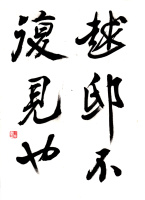 越邸不
復見也